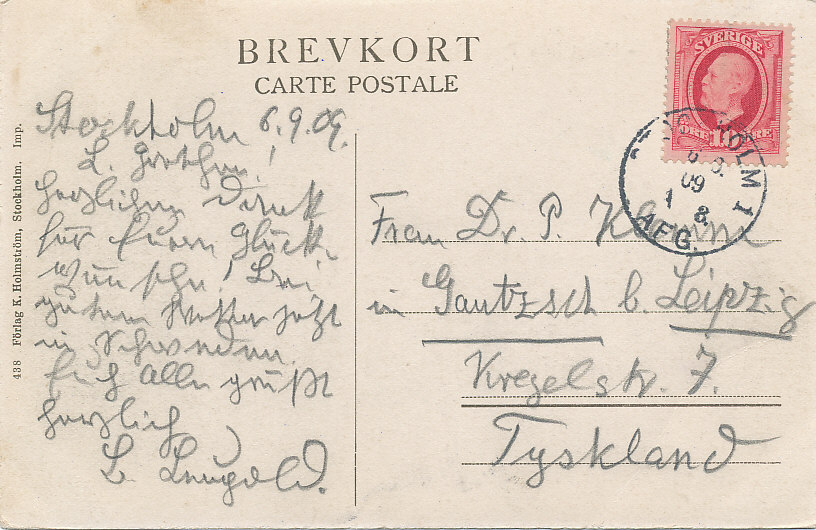 BREVKORT
CARTE POSTALE
SVERIGE
ÖRE 10 ÖRE
HOLM 1
09
1 8.
AFG.
438 Förlag K. Holmström, Stockholm. Imp.
Stockholm 6.9.09.
L. Grethen!
Herzlichen Dank
für Euern Glück-
wunsch! Bei
gutem Wetter jetzt
in Schweden.
Euch alle grüßt
herzlich
L. Leupold.
Frau Dr. P. Klemm
in Gautzsch b. Leipzig
Kregelstr. 7.
Tyskland